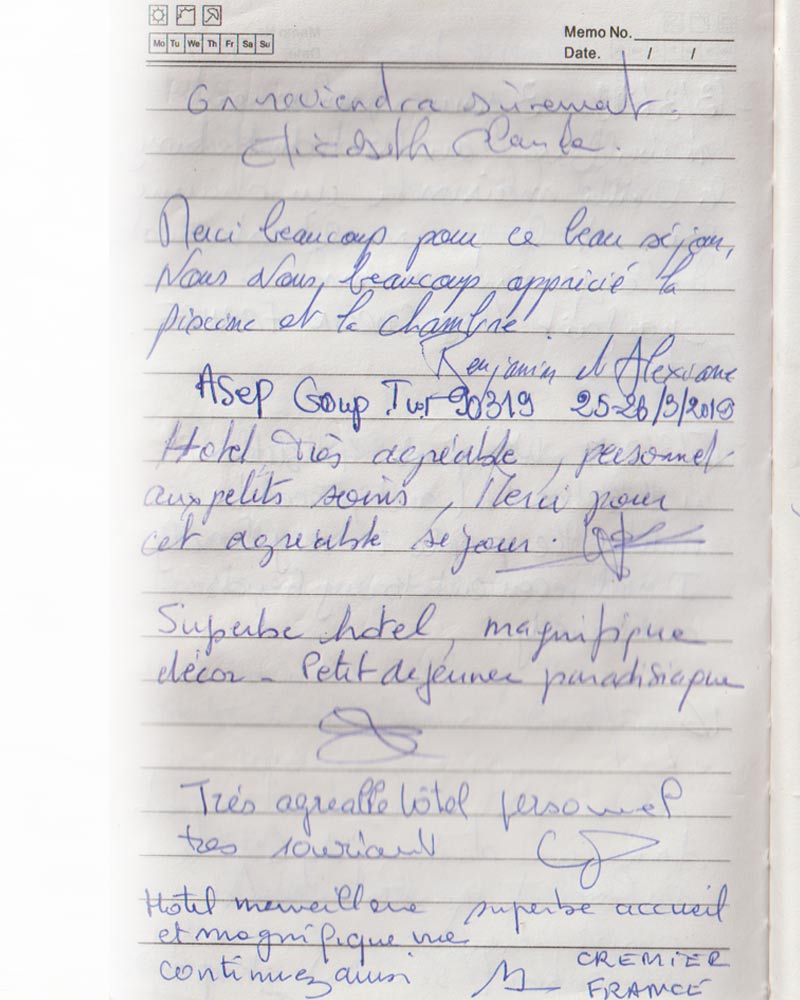 Mo Tu We Th Fr Sa Su
Memo No.
Date. / /
On reviendra sûrement.
Merci beaucoup pour ce beau séjour,
Nous avons beaucoup apprécié la
piscine et la chambre.
Benjamin et Alexiane
ASEP Goup Tur 90319 25-26/3/2019
Hotel très agréable, personnel
aux petits soins, Merci pour
cet agréable séjour.
Superbe hotel, magnifique
décor - Petit dejeuner paradisiaque
Très agréable hôtel personnel
très souriant
Hotel merveilleux superbe accueil
et magnifique vue
continuez ainsi
CREMIER
FRANCE